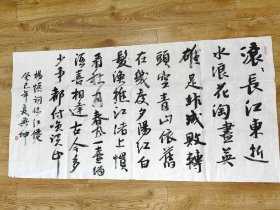 滚〻长江東逝
水浪花淘盡英
雄是非成敗轉
頭空青山依舊
在幾度夕陽紅白
髮漁樵江渚上慣
看秋月春風一壺酒
濁喜相逢古今多
少事都付笑談中
楊慎詞臨江僊
癸巳年